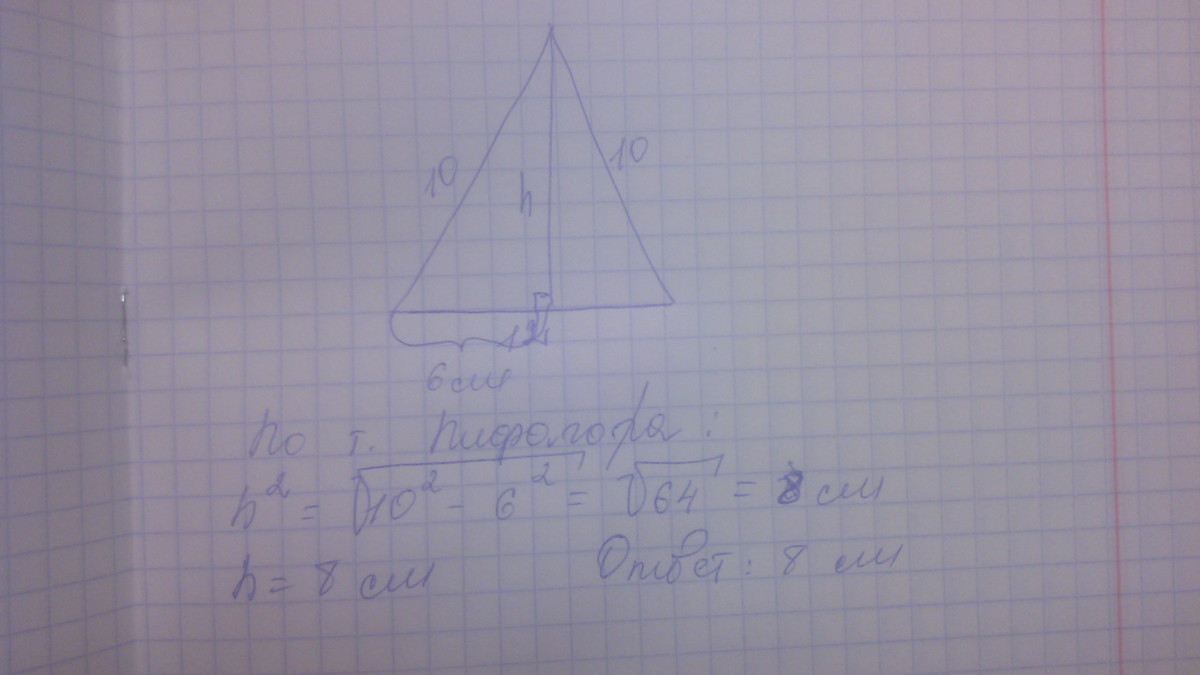 10
10
h
12
6 см
По т. Пифагора:
h² = √10² - 6² = √64 = 8 см
h = 8 см
Ответ: 8 см